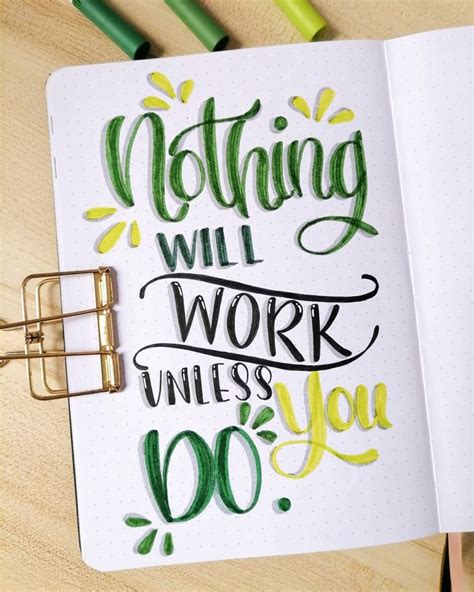 Nothing
WILL
WORK
UNLESS You
DO.